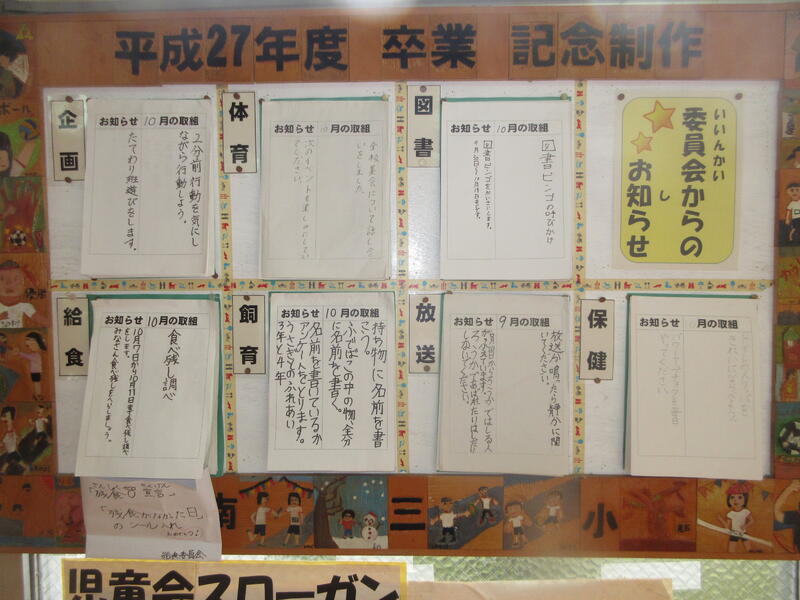 平成27年度 卒業 記念制作
企画
お知らせ 10月の取組
2分前行動を気にし
ながら行動しよう。
たてわり班遊びをします。
体育
お知らせ 10月の取組
全校集会について話し合
いをしました
図書
お知らせ 10月の取組
図書ビンゴの呼びかけ
いいんかい
委員会からの
し
お知らせ
給食
お知らせ 10月の取組
食べ残し調べ
10月7日から10月11日まで食べ残し調べ
をします。
みなさん食べ残しをへらしましょう。
飼育
お知らせ 10月の取組
持ち物に名前を書
こう。
ふでばこの中の物、全部
に名前を書く。
名前を書いているか
アンケートをとります。
うさぎとのふれあい
3年と4年
放送
お知らせ 9月の取組
放送が鳴ったら静かに聞
いてください。
保健
お知らせ 月の取組
「残食0宣言」
「残食がなかった日」
のシール入れ
給食委員会
南三小
児童会スローガン